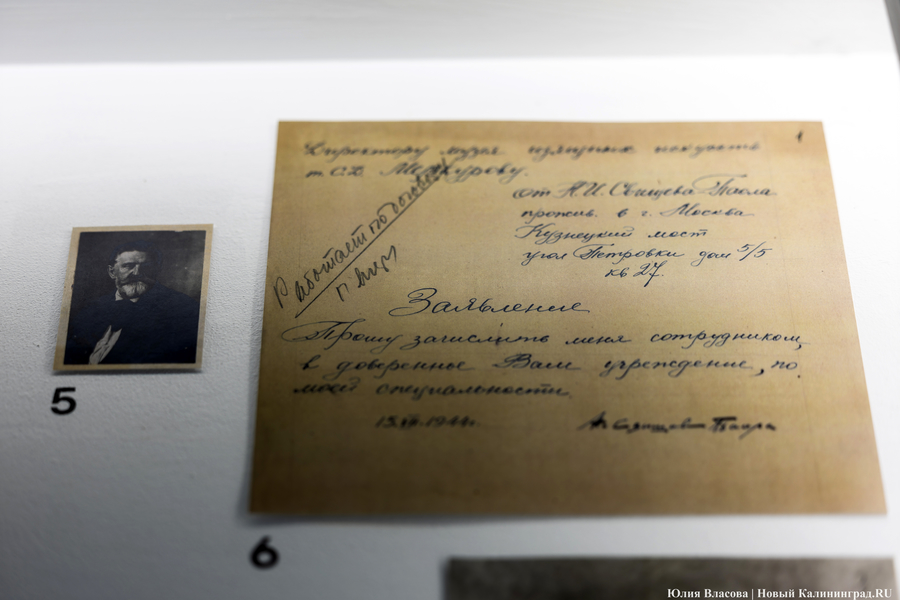 1
Директору музея изящных искусств
т. С.Д. Меркурову.
от А.И. Свищева-Паола
прожив. в г. Москва
Кузнецкий мост
угол Петровки дом 5/5
кв 27.
Работает по договору
Заявление
Прошу зачислить меня сотрудником,
в доверенное Вам учреждение, по
моей специальности.
1944г.
А Свищев-Паола
5
6
Юлия Власова | Новый Калининград.RU